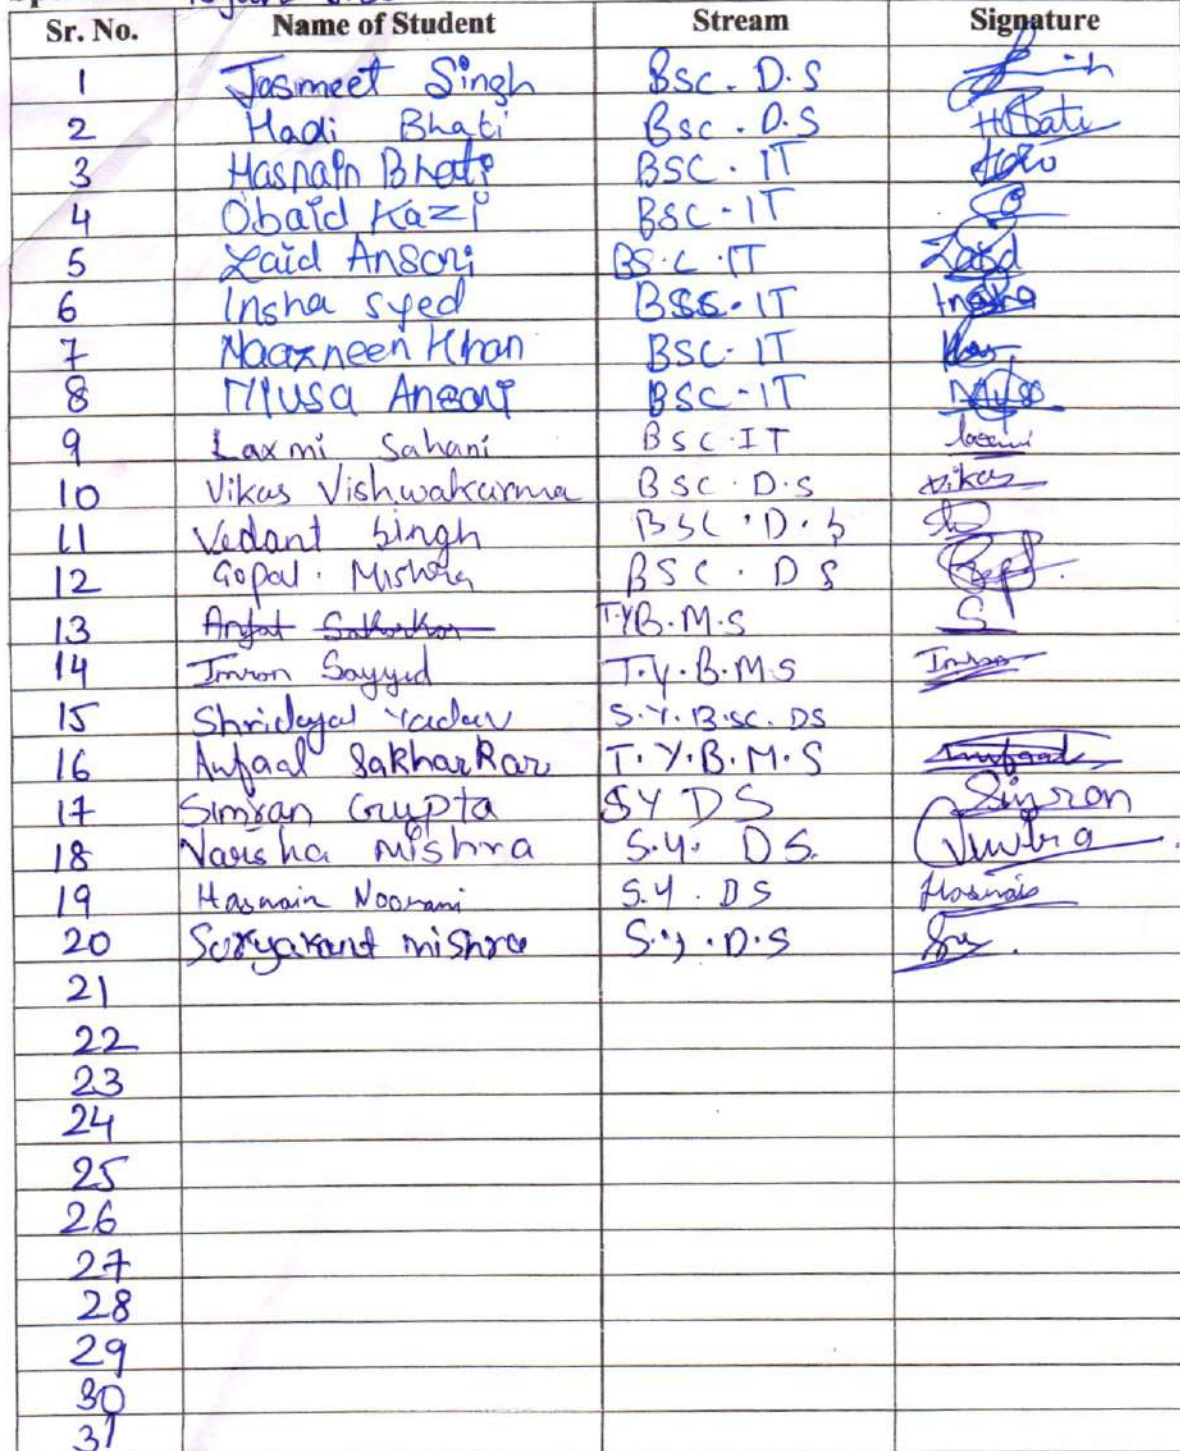 Sr. No. Name of Student Stream Signature
1 Jasmeet Singh BSC. D.S
2 Hadi Bhati BSC. D.S HBati
3 Hasnain Bhati BSC. IT
4 Obaid Kazi BSC-IT
5 Zaid Ansari BS.C.IT Zaid
6 Insha Syed BSC.IT Insha
7 Naazneen Khan BSC-IT
8 Musa Ansari BSC-IT Musa
9 Laxmi Sahani BSC.IT laxmi
10 Vikas Vishwakarma BSC.D.S vikas
11 Vedant Singh BSC.D.S
12 Gopal. Mishra BSC. DS
13 T.YB.M.S S
14 Imran Sayyed T.Y.B.M.S Imran
15 Shridayal Yadav S.Y.B.sc. DS
16 Anfaal Sakharkar T.Y.B.M.S Anfaal
17 Simran Gupta SY DS Simran
18 Varsha Mishra S.Y. DS.
19 Hasnain Noorani S.Y. DS Hasnain
20 Suryakant mishra S.Y.D.S
21
22
23
24
25
26
27
28
29
30
31